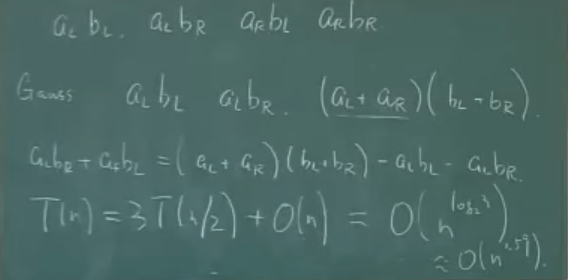 a_L b_L. a_L b_R a_R b_L a_R b_R
Gauss a_L b_L a_L b_R. (a_L + a_R)(b_L - b_R).
a_L b_R + a_R b_L = (a_L + a_R)(b_L + b_R) - a_L b_L - a_L b_R.
T(n) = 3T(n/2) + O(n) = O(n^{log_2 3})
≈ O(n^{1.59}).